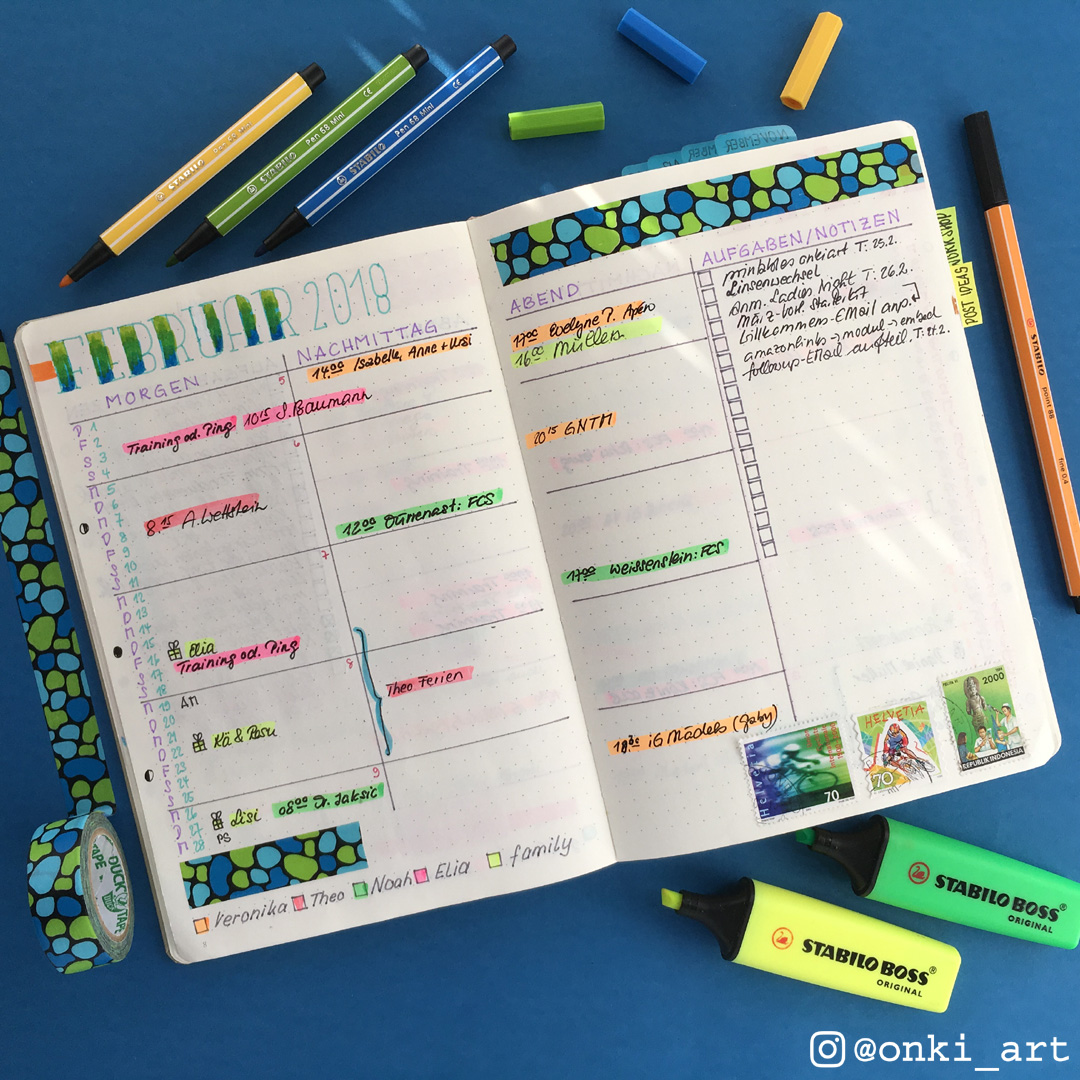 STABILO Pen 68 Mini CE
STABILO Pen 68 Mini CE
STABILO Pen 68 Mini CE
NOVEMBER
STABILO point 88 fine 0,4
POST IDEAS
FEBRUAR 2018
MORGEN
NACHMITTAG
ABEND
AUFGABEN/NOTIZEN
printables onkiart T: 25.2.
Linsenwechsel
Anm. Ladies Night T: 26.2.
März-Vok. Starterkit
Willkommens-EMail anp.
amazonlinks → modul → embed
followup-EMail
5
14.00 Isabelle, Anne + Ursi
17.00 Evelyne T. Apéro
16.00 Müllern
D 1
F 2
S 3
S 4
Training od. Ping 10.15 S. Baumann
6
20.15 GNTM
M 5
D 6
M 7
D 8
F 9
S 10
S 11
8.15 A. Wettstein
12.00 Dünenast: FCS
7
17.00 Weissenstein: FCS
M 12
D 13
M 14
D 15
F 16
S 17
S 18
Elia
Training od. Ping
8
Theo Ferien
M 19
D 20
M 21
D 22
F 23
S 24
S 25
18.30 iG Mädels (Gaby)
9
M 26
D 27
M 28
Lisi 08.00 Dr. Jaksic
PS
Veronika Theo Noah Elia family
HELVETIA 70
HELVETIA 70
2000 REPUBLIK INDONESIA
DUCK TAPE
STABILO BOSS® ORIGINAL
STABILO BOSS® ORIGINAL
@onki_art